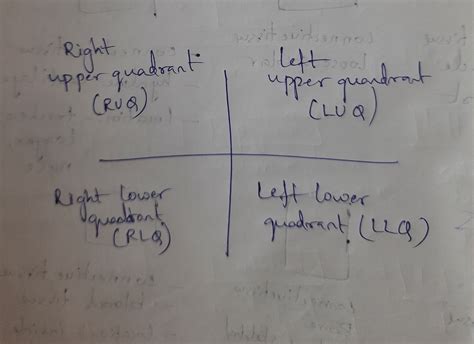 Right
upper quadrant
(RUQ)
Left
upper quandrant
(LUQ)
Right lower
quadrant
(RLQ)
Left lower
quadrant (LLQ)